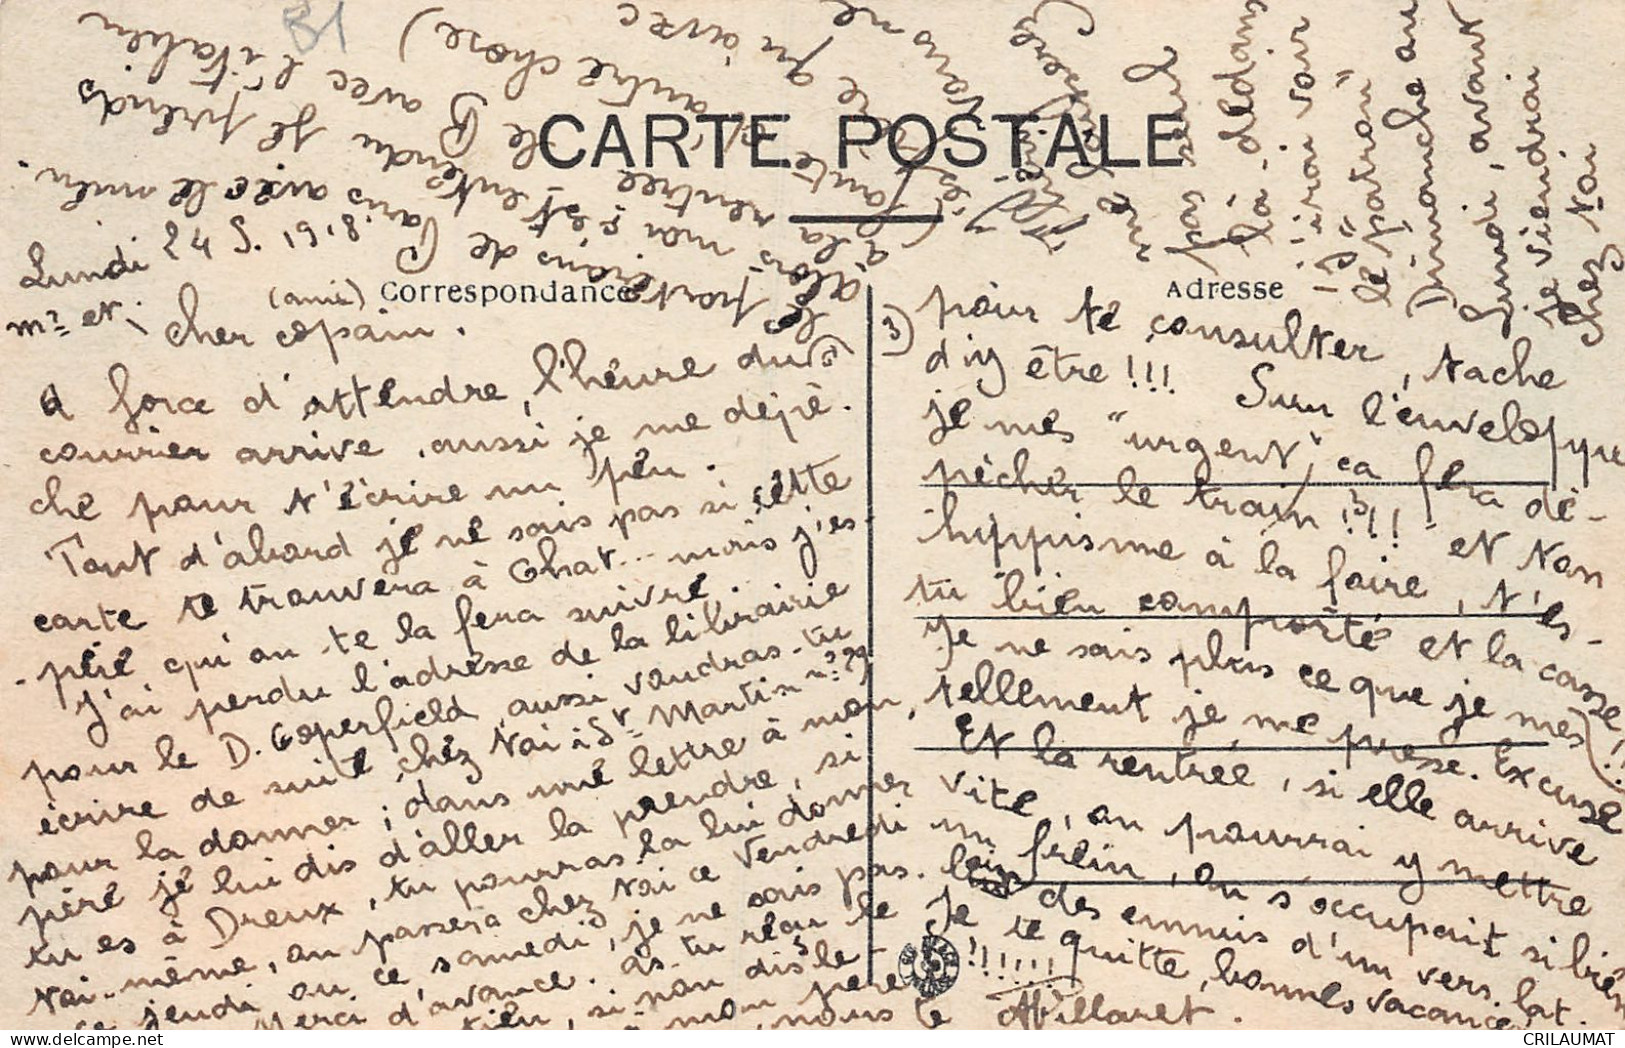 CARTE POSTALE
Correspondance
Adresse
Lundi 24 S. 1918
mr et
(ami)
cher copain.
A force d'attendre, l'heure du
courrier arrive, aussi je me dépê-
che pour t'écrire un peu.
Tout d'abord je ne sais pas si cette
carte te trouvera à Chat... mais j'es-
-père qu'on te la fera suivre
J'ai perdu l'adresse de la librairie
pour le D. Coperfield, aussi voudras-tu
écrire de suite chez toi : St Martin n° 29
pour la donner ; dans une lettre à mon
père je lui dis d'aller la prendre, si
tu es à Dreux, tu pourras la lui donner
toi-même, on passera chez toi ce Vendredi
ce jeudi ou ce samedi, je ne sais pas.
Merci d'avance. as-tu reçu le
tien, si non dis le
à mon père
nous le
3) pour te consulter, tache
d'y être !!! Sur l'enveloppe
je mes "urgent", ça fera dé-
pêcher le train !!! et ton
hippisme à la foire, t'es-
tu bien comporté et la casse !!
Je ne sais plus ce que je mes
tellement je me presse. Excuse
Et la rentrée, si elle arrive
vite, on pourrai y mettre
un frein, on s'occupait si bien
loin des ennuis d'un vers lat.
Je te quitte, bonnes vacances
!!!!!!
AVillaret.
le porterons de Paris avec le mien.
alors moi s'est entendu je prends
à la rentrée le B avec l'italien
(faute d'autre chose)
je
que si tu
pas
là-dedans
j'irai voir
"le patron"
Dimanche au
Lundi, avant
je viendrai
chez toi
B1
CRILAUMAT